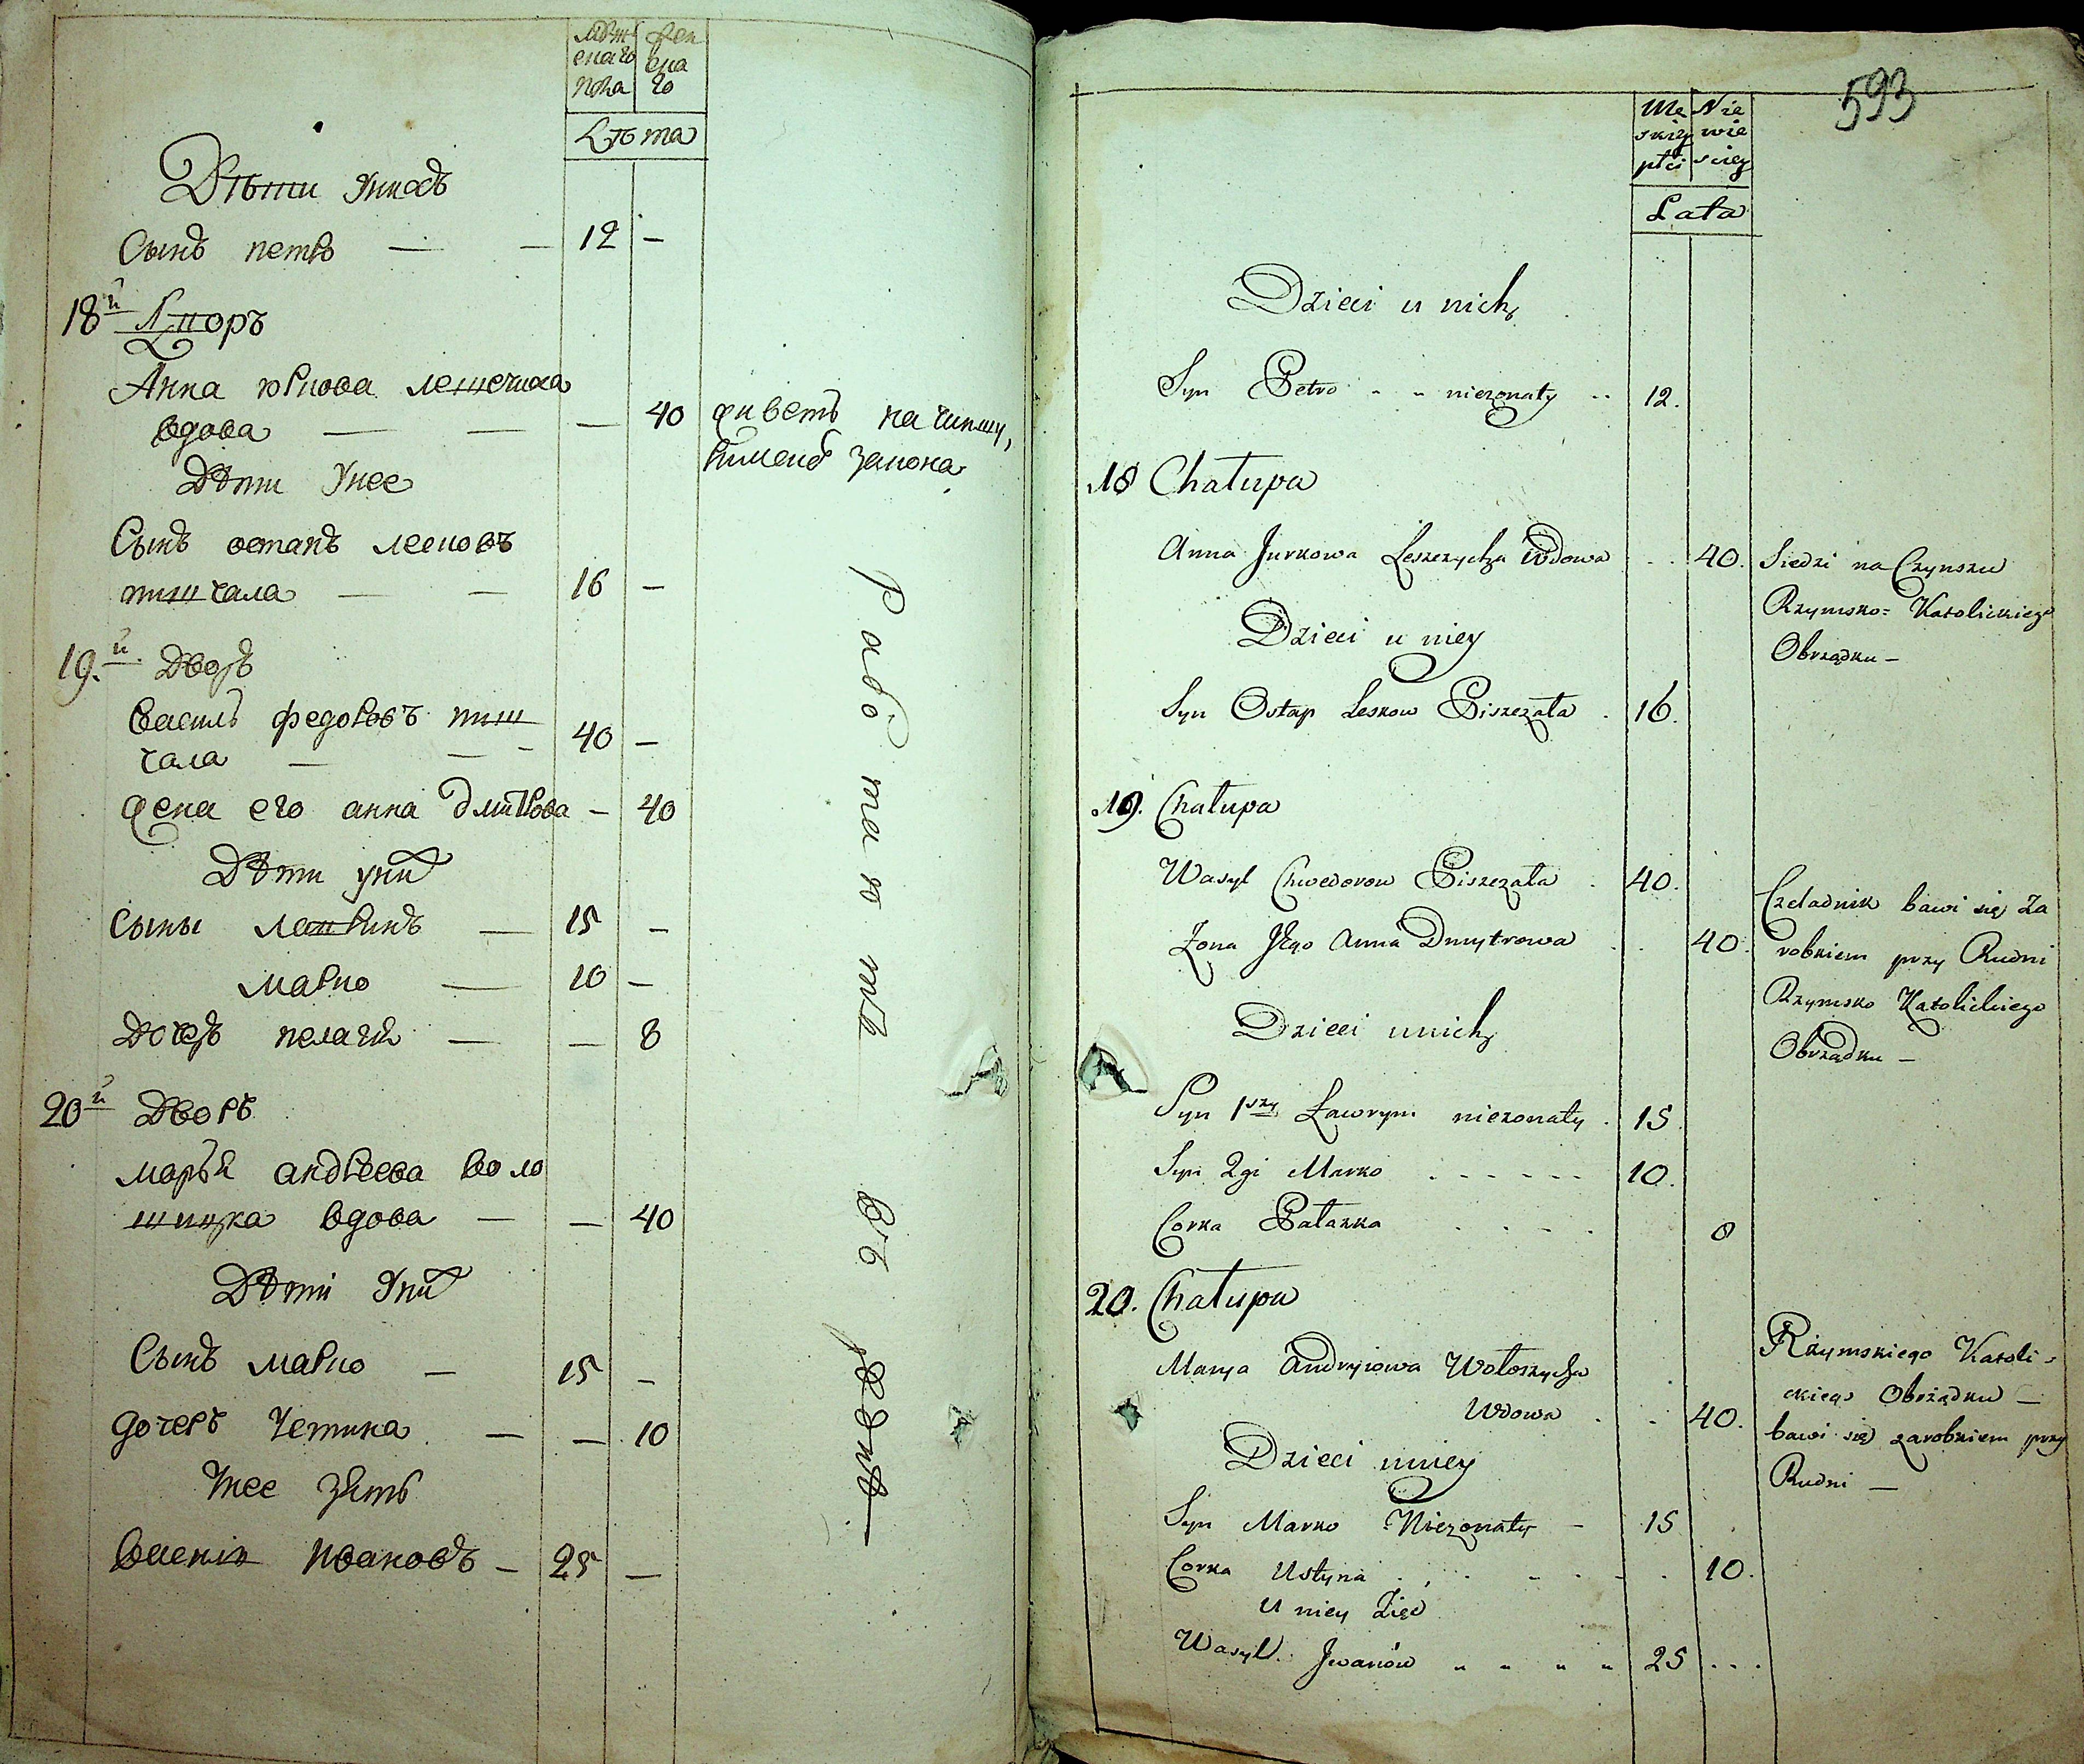 мужескаго пола
женскаго
Лѣта
Дѣти у нихъ
Сынъ петръ — — 12 —
18й Дворъ
Анна юркова лещечиха
вдова — — — 40 живетъ на чиншу,
римскаго закона
Дѣти у нее
Сынъ остапъ лесковъ
пищала — — 16 —
19.й Дворъ
василь федоровъ пищ
чала — — — 40 —
жена его анна дмитрова — 40
Дѣти у нихъ
Сыны лавринъ — 15 —
марко — 10 —
Дочерь пелагия — — 8
20й Дворъ
марья андреева воло
шинка вдова — — 40
Дѣти у нихъ
Сынъ марко — 15 —
дочерь — — 10
у нее зять
василий Ивановъ — 25 —
работаютъ въ рудни —
593
Męskiey płci
Niewieściey
Lata
Dzieci u nich
Syn Petro niezonaty 12.
18 Chałupa
Anna Jurkowa Leszczycha Wdowa 40. Siedzi na Czynszu
Rzymsko-Katolickiego
Obrządku —
Dzieci u niey
Syn Ostap Leskow Piszczała 16.
19. Chałupa
Wasyl Chwedorow Piszczała 40.
Czeladnik bawi się Za
Zona Jego Anna Dmytrowa 40.
robkiem przy Rudni
Rzymsko Katolickiego
Dzieci unich
Obrządku —
Syn 1szy Ławryn niezonaty 15
Syn 2gi Marko 10.
Corka Pałazka 8
20. Chałupa
Rzymskiego Katoli-
Marya Andryiowa Wołoszycha
ckiego Obrządku —
Wdowa 40.
bawi się zarobkiem przy
Dzieci uniey
Rudni —
Syn Marko Niezonaty — 15
Corka Ustyna 10.
U niey Zięć
Wasyl Jwanów 25 ...